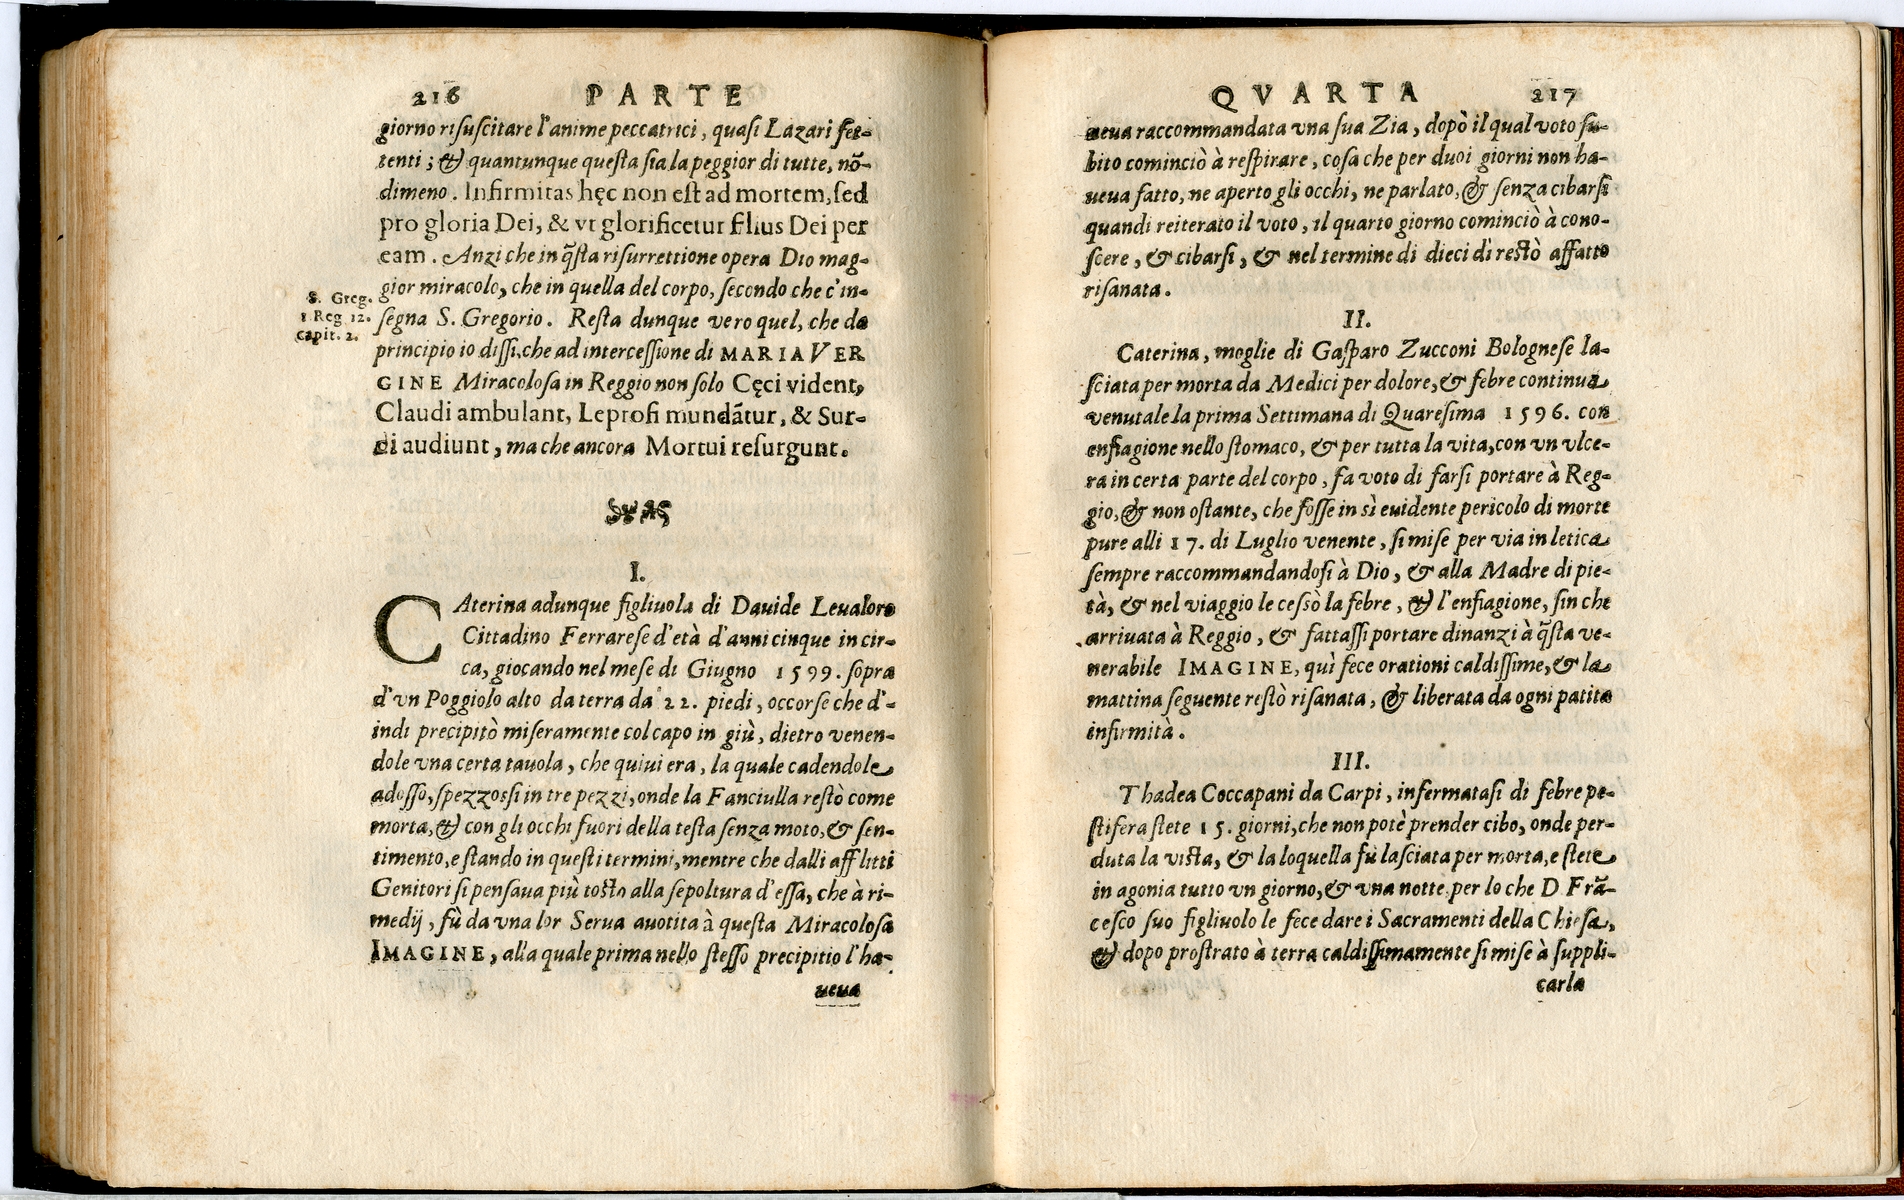 216 PARTE
giorno risuscitare l'anime peccatrici, quasi Lazari fet-
tenti; & quantunque questa sia la peggior di tutte, nõ-
dimeno. Infirmitas hęc non est ad mortem, sed
pro gloria Dei, & vt glorificetur filius Dei per
eam. Anzi che in q̃sta risurrettione opera Dio mag-
gior miracolo, che in quella del corpo, secondo che c'in-
S. Greg.
1 Reg. 12.
capit. 2.
segna S. Gregorio. Resta dunque vero quel, che da
principio io dissi, che ad intercessione di MARIA VER
GINE Miracolosa in Reggio non solo Cęci vident,
Claudi ambulant, Leprosi mundãtur, & Sur-
di audiunt, ma che ancora Mortui resurgunt.
I.
CAterina adunque figliuola di Dauide Leualoro
Cittadino Ferrarese d'età d'anni cinque in cir-
ca, giocando nel mese di Giugno 1599. sopra
d'vn Poggiolo alto da terra da 22. piedi, occorse che d'-
indi precipitò miseramente col capo in giù, dietro venen-
dole vna certa tauola, che quiui era, la quale cadendole
adosso, spezzossi in tre pezzi, onde la Fanciulla restò come
morta, & con gli occhi fuori della testa senza moto, & sen-
timento, e stando in questi termini, mentre che dalli afflitti
Genitori si pensaua più tosto alla sepoltura d'essa, che à ri-
medij, fù da vna lor Serua auotita à questa Miracolosa
IMAGINE, alla quale prima nello stesso precipitio l'ha-
ueua
QVARTA 217
ueua raccommandata vna sua Zia, dopò il qual voto su-
bito cominciò à respirare, cosa che per duoi giorni non ha-
ueua fatto, ne aperto gli occhi, ne parlato, & senza cibarsi
quandi reiterato il voto, il quarto giorno cominciò à cono-
scere, & cibarsi, & nel termine di dieci dì restò affatto
risanata.
II.
Caterina, moglie di Gasparo Zucconi Bolognese la-
sciata per morta da Medici per dolore, & febre continua
venutale la prima Settimana di Quaresima 1596. con
enfiagione nello stomaco, & per tutta la vita, con vn vlce-
ra in certa parte del corpo, fa voto di farsi portare à Reg-
gio, & non ostante, che fosse in sì euidente pericolo di morte
pure alli 17. di Luglio venente, si mise per via in letica
sempre raccommandandosi à Dio, & alla Madre di pie-
tà, & nel viaggio le cessò la febre, & l'enfiagione, fin che
arriuata à Reggio, & fattassi portare dinanzi à q̃sta ve-
nerabile IMAGINE, quì fece orationi caldissime, & la
mattina seguente restò risanata, & liberata da ogni patita
infirmità.
III.
Thadea Coccapani da Carpi, infermatasi di febre pe-
stifera stete 15. giorni, che non potè prender cibo, onde per-
duta la vista, & la loquella fù lasciata per morta, e stete
in agonia tutto vn giorno, & vna notte per lo che D. Frã-
cesco suo figliuolo le fece dare i Sacramenti della Chiesa,
& dopo prostrato à terra caldissimamente si mise à suppli-
carla